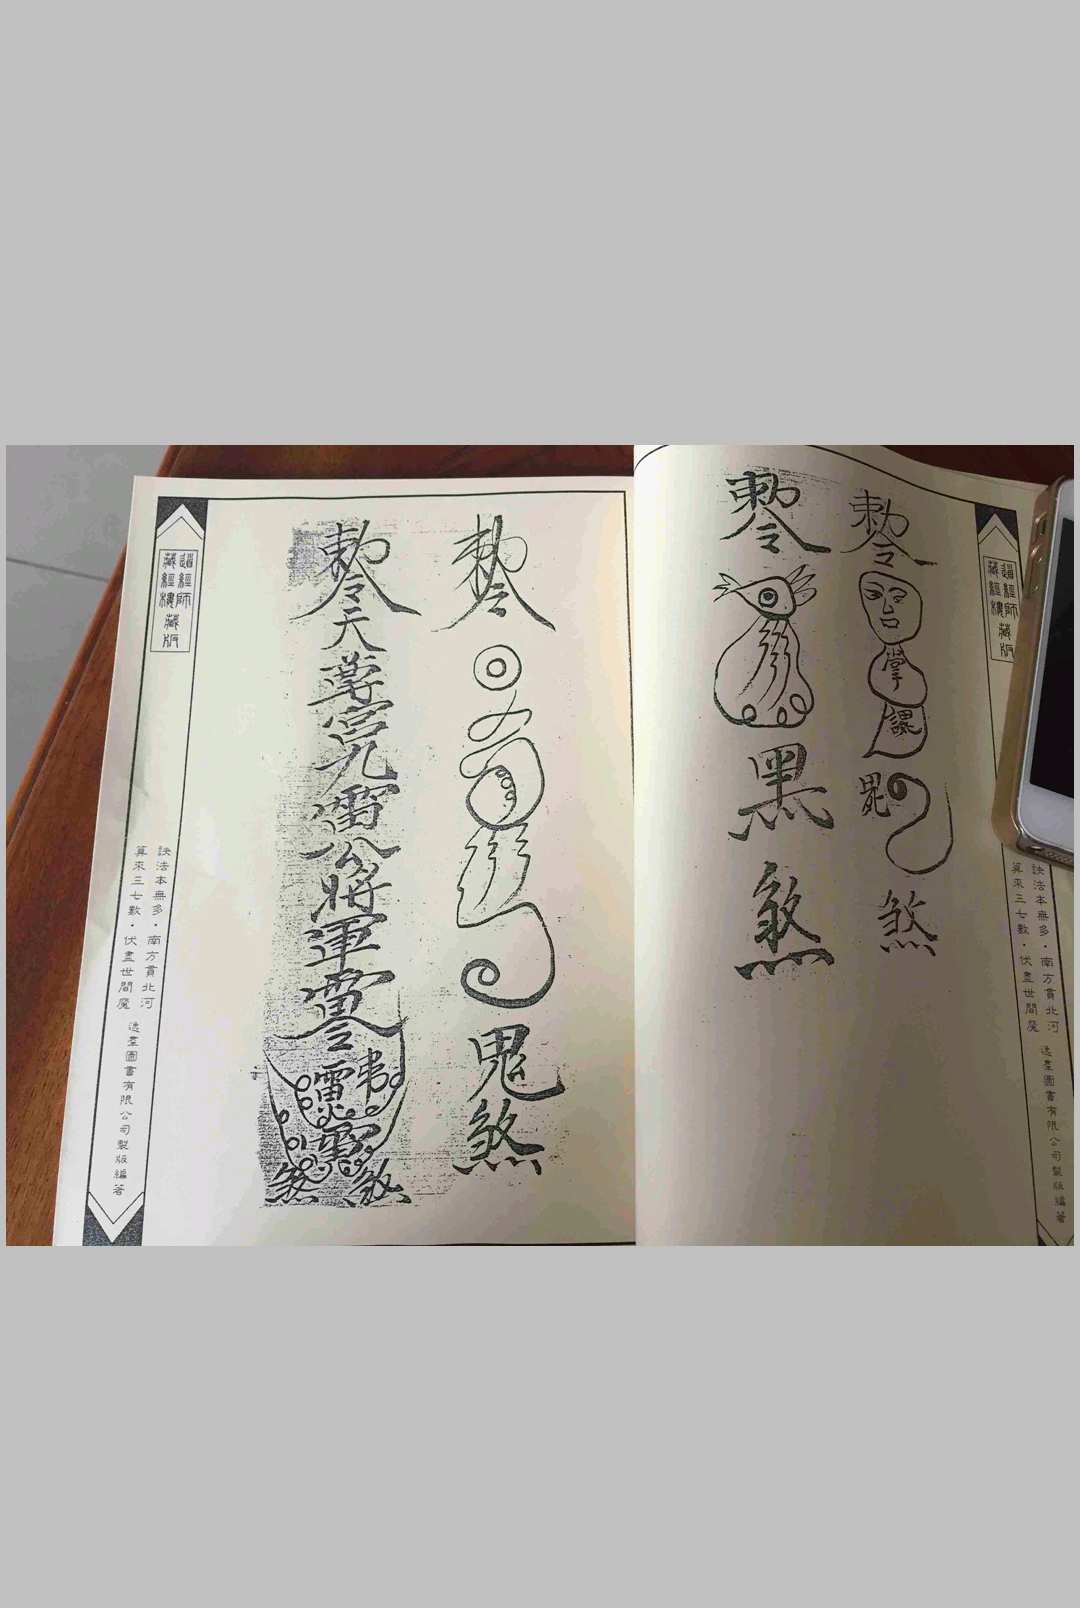 敕令
掌
課
鬼
煞
敕令
黑
煞
道經師
藏經樓藏版
訣法本無多・南方貫北河
算來三七數・伏盡世間魔
逸群圖書有限公司製版編著
敕令
鬼
煞
敕令
天
尊
雷
公
將
軍
靈
雷
煞 煞
道經師
藏經樓藏版
訣法本無多・南方貫北河
算來三七數・伏盡世間魔
逸群圖書有限公司製版編著